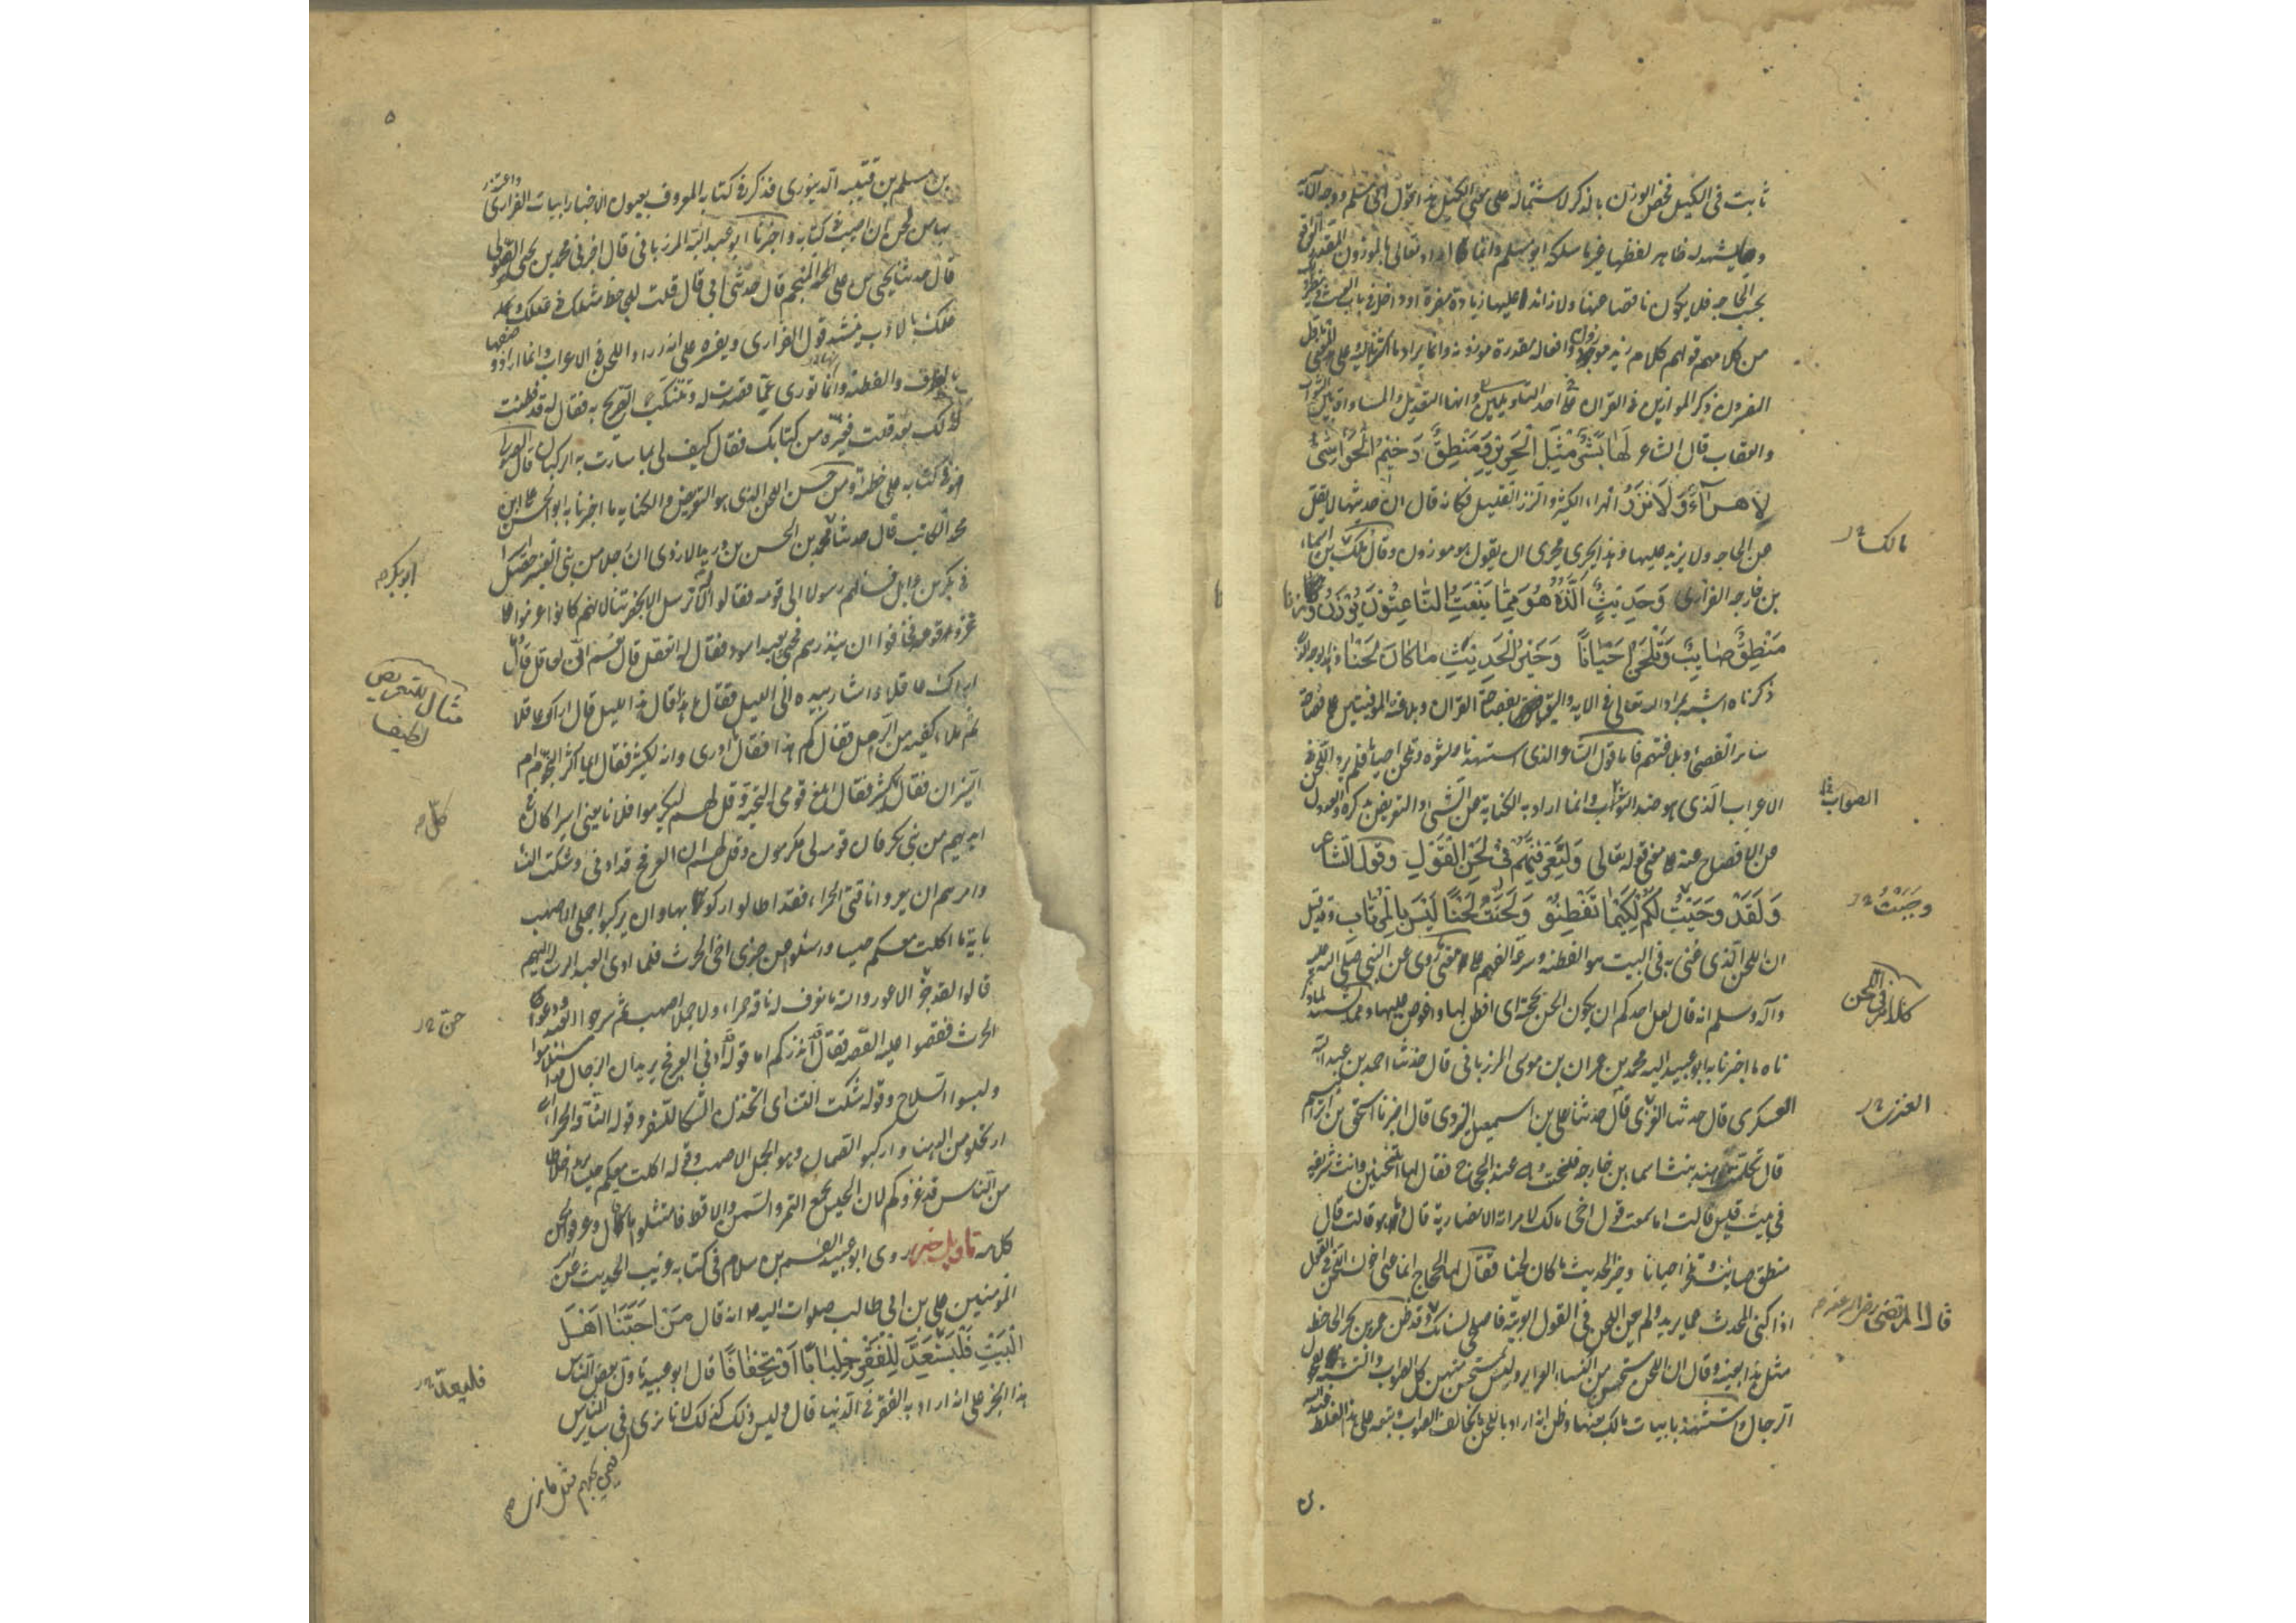 ثابت في الكيل فخص الوزن بالذكر لاشتماله على معنى الكيل هذا قول ابي مسلم ووجه الآية
يشهد له ظاهر لفظها غير ما سلكه ابو مسلم وانما اراد تعالى بالموزون المقدر الواقع
بحسب الحاجة فلا يكون ناقصا عنها ولا زائدا عليها زيادة مضرة او داخلة في باب العبث
من كلامهم قولهم كلام زيد موزون وافعاله مقدرة موزونة وانما يراد ما اشرنا اليه وعلى هذا المعنى تأول
المفسرون ذكر الموازين في القرآن على احد التأويلين وانها التعديل والمساواة بين الثواب
والعقاب قال الشاعر لَهَا بَشَرٌ مِثْلُ الْحَرِيرِ وَمَنْطِقٌ رَخِيمُ الْحَوَاشِي
لَا هُرَاءٌ وَلَا نَزْرُ الهراء الكثير والنزر القليل فكانه قال ان حديثها لا يقل
عن الحاجة ولا يزيد عليها وهذا يجري مجرى ان يقول هو موزون وقال مالك بن اسماء
بن خارجة الفزاري وَحَدِيثٍ أَلَذُّهُ هُوَ مِمَّا يَنْعَتُ النَّاعِتُونَ يُوزَنُ وَزْنَا
مَنْطِقٌ صَايِبٌ وَتَلْحَنُ أَحْيَانًا وَخَيْرُ الْحَدِيثِ مَا كَانَ لَحْنَا وهذا الوجه الذي
ذكرناه اشبه بمراد الله تعالى في الآية واليق بفصاحة القرآن وبلاغته الموفيتين على فصاحة
سائر الفصحاء وبلاغتهم فاما قول الشاعر الذي استشهدنا بشعره وتلحن احيانا فلم يرد اللحن في
الاعراب الذي هو ضد الصواب وانما اراد به الكناية عن الشيء والتعريض بذكره والعدول
عن الافصاح عنه على معنى قوله تعالى وَلَتَعْرِفَنَّهُمْ فِي لَحْنِ الْقَوْلِ وقول الشاعر
وَلَقَدْ وَحَيْتُ لَكُمْ لِكَيْمَا تَفْطِنُوا وَلَحَنْتُ لَحْنًا لَيْسَ بِالْمُرْتَابِ وقد قيل
ان اللحن الذي عني به في البيت هو الفطنة وسرعة الفهم على ما روي عن النبي صلى الله عليه
وآله وسلم انه قال لعل احدكم ان يكون الحن بحجته اي افطن لها واغوص عليها ومما يشهد لما ذكر
ناه ما اخبرنا به ابو عبيد الله محمد بن عمران بن موسى المرزباني قال حدثنا احمد بن عبد الله
العسكري قال حدثنا العنزي قال حدثنا علي بن اسمعيل اليزيدي قال اخبرنا اسحق بن ابراهيم
قال تكلمت هند بنت اسماء بن خارجة فلحنت وهي عند الحجاج فقال لها اتلحنين وانت شريفة
في بيت قيس قالت اما سمعت قول اخي مالك لامراته الانصارية قال وما هو قالت قال
منطق صائب وتلحن احيانا وخير الحديث ما كان لحنا فقال لها الحجاج انما عنى اخوك اللحن في القول
اذا كنى المحدث عما يريد ولم يعن اللحن في العربية فاصلحي لسانك وقد ظن عمرو بن بحر الجاحظ
مثل هذا بعينه وقال ان اللحن مستحسن من النساء الغرائر وليس مستحسن منهن كل الصواب والتشبه بفحول
الرجال واستشهد بابيات مالك بعينها وظن انه اراد باللحن ما يخالف الصواب وتبعه على هذا الغلط عبد الله
مالك
الصواب
وحيت
كلام في اللحن
العنزي
قال المرتضى رضي الله عنه
٥
بن مسلم بن قتيبة الدينوري فذكر في كتابه المعروف بعيون الاخبار ابيات الفزاري واعتذر
بها من لحن ان اصيب في كتابه واخبرنا ابو عبيد الله المرزباني قال اخبرني محمد بن يحيى الصولي
قال حدثنا يحيى بن علي المنجم قال حدثني ابي قال قلت للجاحظ مثلك في عقلك
وعلمك بالادب ينشد قول الفزاري ويفسره على انه اراد اللحن في الاعراب وانما اراد وصفها
بالظرف والفطنة وانها توري عما قصدت له وتتنكب التصريح به فقال له قد فطنت
لذلك بعد قلت فغيره من كتابك فقال كيف لي بما سارت به الركبان قال الصولي
فهو في كتابه على خطئه ومن حسن اللحن الذي هو التعريض والكناية ما اخبرنا به ابو الحسن علي بن
محمد الكاتب قال حدثنا محمد بن الحسن بن دريد الازدي ان رجلا من بني العنبر حصل اسيرا
في بكر بن وائل فسألهم رسولا الى قومه فقالوا له لا ترسل الا بحضرتنا لانهم كانوا عزموا على
غزو قومه فخافوا ان ينذرهم فجيء بعبد اسود فقال له اتعقل قال نعم اني لعاقل قال
اراك عاقلا واشار بيده الى الليل فقال ما هذا قال هذا الليل قال اراك عاقلا
ثم ملأ كفيه من الرمل فقال كم هذا فقال لا ادري وانه لكثير فقال ايما اكثر النجوم ام
النيران فقال كل كثير فقال ابلغ قومي التحية وقل لهم ليكرموا فلانا يعني اسيرا كان في
ايديهم من بني بكر فان قومه لي مكرمون وقل لهم ان العرفج قد ادبى وشكت النساء
وامرهم ان يعروا ناقتي الحمراء فقد اطالوا ركوبها وان يركبوا جملي الاصهب
بآية ما اكلت معكم حيسا واسئلوا عن خبري اخي الحرث فلما ادى العبد الرسالة اليهم
قالوا لقد جن الاعور والله ما نعرف له ناقة حمراء ولا جملا اصهب ثم سرحوا العبد ودعوا
الحرث فقصوا عليه القصة فقال قد انذركم اما قوله قد ادبى العرفج يريد ان الرجال قد استلأموا
ولبسوا السلاح وقوله شكت النساء اي اتخذن الشكاء للسفر وقوله الناقة الحمراء اي
ارتحلوا عن الدهناء واركبوا الصمان وهو الجمل الاصهب وقوله اكلت معكم حيسا يريد اخلاطا
من الناس قد غزوكم لان الحيس يجمع التمر والسمن والاقط فامتثلوا ما قال وعرفوا لحن
كلامه تأويل خبر روى ابو عبيد القسم بن سلام في كتابه غريب الحديث عن امير
المؤمنين علي بن ابي طالب صلوات الله عليه انه قال مَنْ أَحَبَّنَا أَهْلَ
الْبَيْتِ فَلْيَسْتَعِدَّ لِلْفَقْرِ جِلْبَابًا أَوْ تِجْفَافًا قال ابو عبيد تأول بعض الناس
هذا الخبر على انه اراد به الفقر في الدنيا قال وليس ذلك كذلك لانا نرى في سائر الناس
ابو بكر
مثال للتعريض لطيف
كل
جن
فليعد